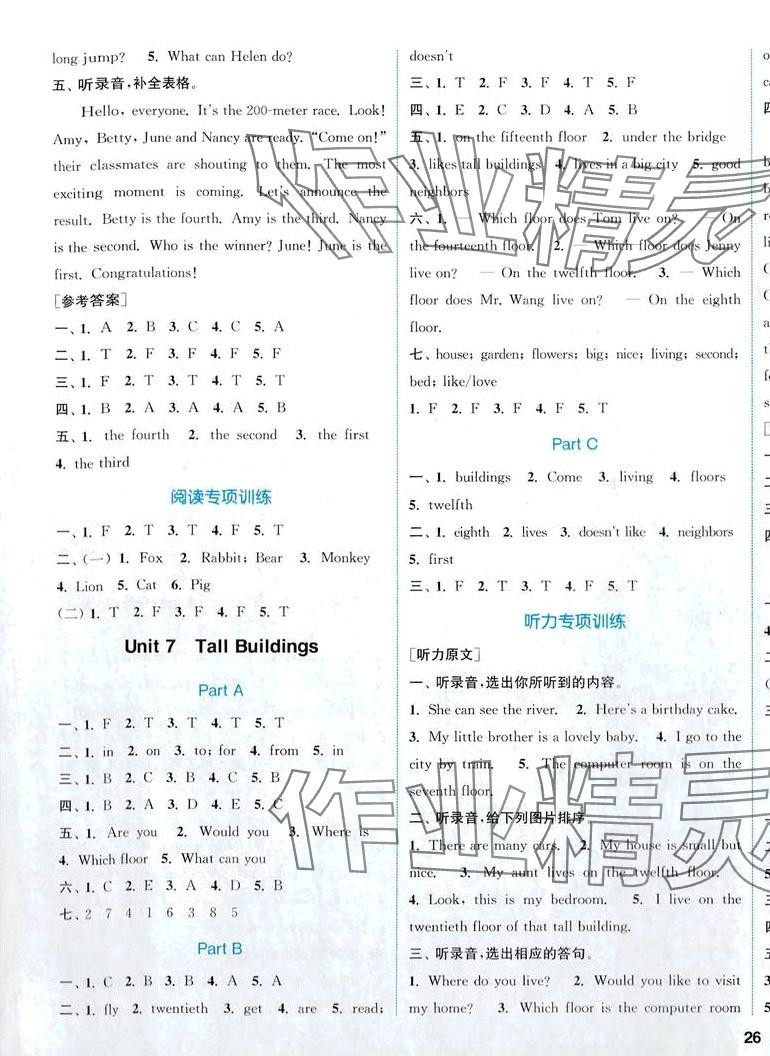 long jump? 5. What can Helen do?
五、听录音,补全表格。
Hello, everyone. It's the 200-meter race. Look!
Amy, Betty, June and Nancy are ready. "Come on!"
their classmates are shouting to them. The most
exciting moment is coming. Let's announce the
result. Betty is the fourth. Amy is the third. Nancy
is the second. Who is the winner? June! June is the
first. Congratulations!
[参考答案]
一、1. A 2. B 3. C 4. C 5. A
二、1. T 2. F 3. F 4. F 5. T
三、1. F 2. T 3. T 4. T 5. T
四、1. B 2. A 3. A 4. A 5. B
五、1. the fourth 2. the second 3. the first
4. the third
阅读专项训练
一、1. F 2. T 3. T 4. T 5. T
二、(一) 1. Fox 2. Rabbit; Bear 3. Monkey
4. Lion 5. Cat 6. Pig
(二) 1. T 2. F 3. F 4. F 5. T
Unit 7 Tall Buildings
Part A
一、1. F 2. T 3. T 4. T 5. T
二、1. in 2. on 3. to; for 4. from 5. in
三、1. B 2. C 3. B 4. C 5. B
四、1. B 2. A 3. D 4. E 5. C
五、1. Are you 2. Would you 3. Where is
4. Which floor 5. What can you
六、1. C 2. E 3. A 4. D 5. B
七、2 7 4 1 6 3 8 5
Part B
一、1. C 2. B 3. B 4. A 5. A
二、1. fly 2. twentieth 3. get 4. are 5. read;
doesn't
三、1. T 2. F 3. F 4. T 5. F
四、1. E 2. C 3. D 4. A 5. B
五、1. on the fifteenth floor 2. under the bridge
3. likes tall buildings 4. lives in a big city 5. good
neighbors
六、1. — Which floor does Tom live on? — On
the fourteenth floor. 2. — Which floor does Jenny
live on? — On the twelfth floor. 3. — Which
floor does Mr. Wang live on? — On the eighth
floor.
七、house; garden; flowers; big; nice; living; second;
bed; like/love
1. F 2. F 3. F 4. F 5. T
Part C
一、1. buildings 2. Come 3. living 4. floors
5. twelfth
二、1. eighth 2. lives 3. doesn't like 4. neighbors
5. first
三、1. F 2. T 3. T 4. F 5. T
听力专项训练
[听力原文]
一、听录音,选出你所听到的内容。
1. She can see the river. 2. Here's a birthday cake.
3. My little brother is a lovely baby. 4. I go to the
city by train. 5. The computer room is on the
seventh floor.
二、听录音,给下列图片排序。
1. There are many cars. 2. My house is small but
nice. 3. My aunt lives on the third floor.
4. Look, this is my bedroom. 5. I live on the
twentieth floor of that tall building.
三、听录音,选出相应的答句。
1. Where do you live? 2. Would you like to visit
my home? 3. Which floor is the computer room
26
作业精灵
作业精灵